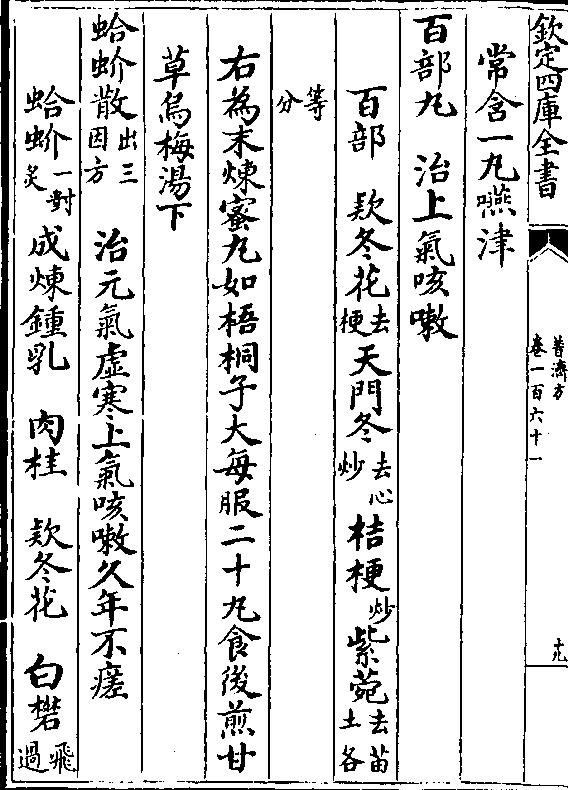 欽定四庫全書
普濟方
卷一百六十一
十九
常含一丸嚥津
百部丸　治上氣咳嗽
百部　欵冬花去梗　天門冬去心炒　桔梗炒　紫菀去苗土各
等分
右為末煉蜜丸如梧桐子大每服二十丸食後煎甘
草烏梅湯下
蛤蚧散出三因方　治元氣虚寒上氣咳嗽久年不瘥
蛤蚧一對炙　成煉鍾乳　肉桂　欵冬花　白礬飛過